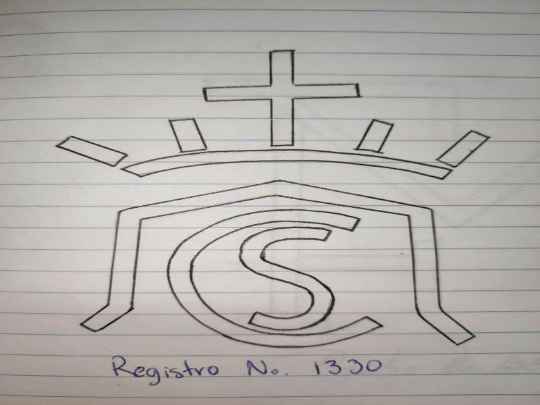 CS
Registro No. 1330